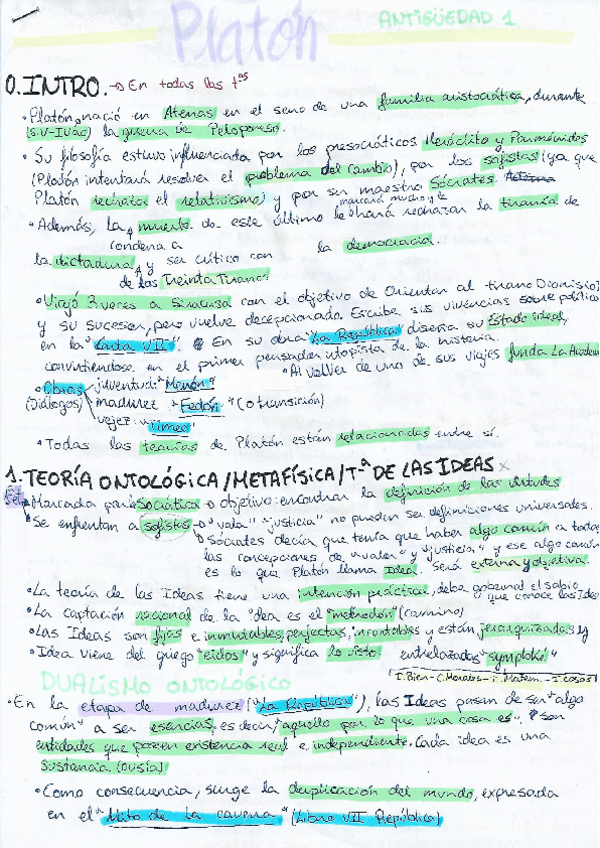 Platón
ANTIGÜEDAD 1
0. INTRO. → En todas las tªs
• Platón nació en Atenas en el seno de una familia aristocrática, durante
(s.V-IVac) la guerra de Peloponeso.
• Su filosofía estuvo influenciada por los presocráticos Heráclito y Parménides
(Platón intentará resolver el problema del cambio), por los sofistas (ya que
Platón rechazó el relativismo) y por su maestro Sócrates.
• Además, la muerte de este último le marcará mucho y le hará rechazar la tiranía de
condena a la democracia.
la dictadura y ser crítico con
de los Treinta Tiranos
• Viajó 3 veces a Siracusa con el objetivo de orientar al tirano Dionisio I
y su sucesor, pero vuelve decepcionado. Escribe sus vivencias sobre política
en la "Carta VII". En su obra "La República" diseña su Estado ideal,
convirtiéndose en el primer pensador utopista de la historia.
• Al volver de uno de sus viajes funda La Academ
• Obras juventud: "Menón"
(Diálogos) madurez: "Fedón" (o transición)
vejez: "Timeo"
• Todas las teorías de Platón están relacionadas entre sí.
1. TEORÍA ONTOLÓGICA/METAFÍSICA/Tª DE LAS IDEAS
• Marcada por la Socrática → objetivo: encontrar la definición de las virtudes
• Se enfrentan a sofistas → "valor" "justicia" no pueden ser definiciones universales.
↳ Sócrates decía que tenía que haber algo común a todas
las concepciones de "valor" y "justicia" y ese algo común
es lo que Platón llama Idea. Será externa y objetiva.
• La teoría de las Ideas tiene una intención práctica, debe gobernar el sabio
que conoce las Ide
• La captación racional de la idea es el "methodon" (camino)
• Las Ideas son fijas e inmutables, perfectas, incontables y están jerarquizadas y
• Idea viene del griego "eidos" y significa lo visto. entrelazadas "symploké"
I.Bien - I.Morales - I.Matem. - I.cosas
DUALISMO ONTOLÓGICO
• En la etapa de madurez ("La República"), las Ideas pasan de ser "algo
común" a ser esencias, es decir, "aquello por lo que una cosa es". Y son
entidades que poseen existencia real e independiente. Cada idea es una
sustancia (ousía)
• Como consecuencia, surge la duplicación del mundo, expresada
en el "Mito de la caverna" (Libro VII República)